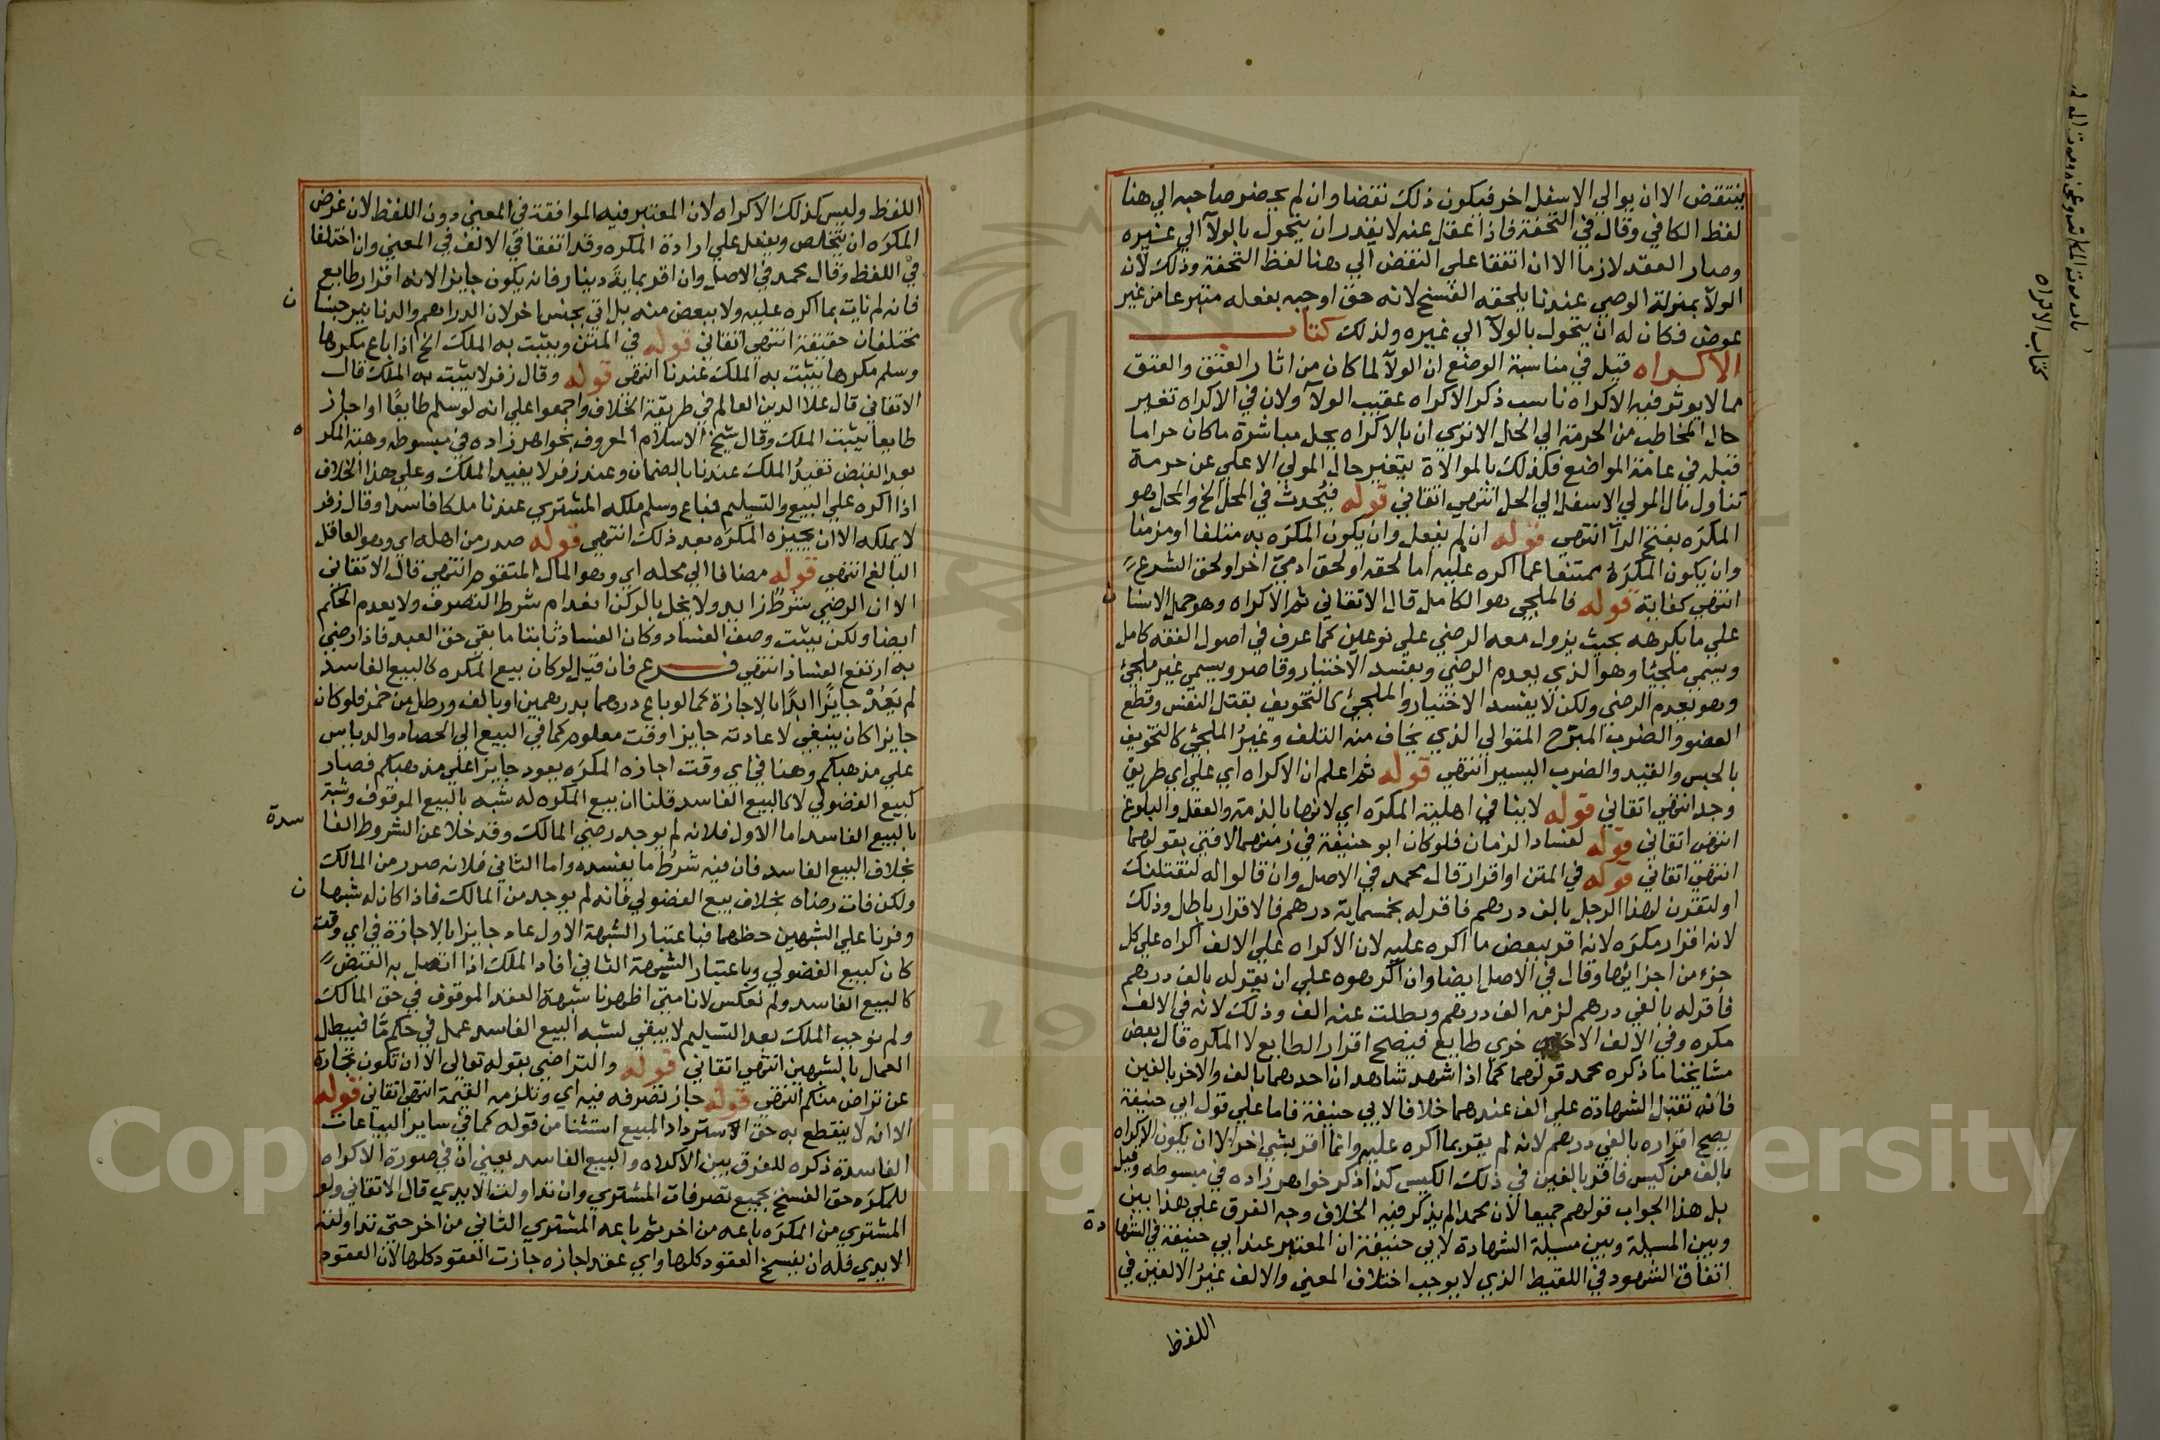 ينتقض الا ان يوالي الاسفل اخر فيكون ذلك نقضا وان لم يحضر صاحبه الي هنا
لفظ الكافي وقال في التحفة فاذا عقل عنه لا يقدر ان يتحول بالولآ الي غيره
وصار العقد لازما الا ان اتفقا علي النقض الي هنا لفظ التحفة وذلك لان
الولآ بمنزلة الوصي عندنا يلحقه الفسخ لانه حق اوجبه بفعله متبرعا من غير
عوض فكان له ان يتحول بالولآ الي غيره ولذلك كتاب
الاكراه قيل في مناسبة الوضع ان الولآ لما كان من اثار العتق والعتق
مما لا يوثر فيه الاكراه ناسب ذكر الاكراه عقيب الولآ ولان في الاكراه تغير
حال المخاطب من الحرمة الي الحل الا تري ان بالاكراه يحل مباشرة ما كان حراما
قبله في عامة المواضع فكذلك بالموالاة يتغير حال المولي الاعلي عن حرمة
تناول مال المولي الاسفل الي الحل انتهي اتقاني قوله فيحدث في المحل الخ والمحل هو
المكره بفتح الرآ انتهي قوله ان لم يفعل وان يكون المكره به متلفا او مزمنا
وان يكون المكره ممتنعا عما اكره عليه اما لحقه او لحق ادمي اخر او لحق الشرع
انتهي كفاية قوله فالملجي هو الكامل قال الاتقاني ثم الاكراه وهو حمل الانسا
ن
علي ما يكرهه بحيث يزول معه الرضي علي نوعين كما عرف في اصول الفقه كامل
ويسمي ملجئا وهو الذي يعدم الرضي ويفسد الاختيار وقاصر ويسمي غير ملجئ
وهو يعدم الرضي ولكن لا يفسد الاختيار والملجئ كالتخويف بقتل النفس وقطع
العضو والضرب المبرح المتوالي الذي يخاف منه التلف وغير الملجئ كالتخويف
بالحبس والقيد والضرب اليسير انتهي قوله ثم اعلم ان الاكراه اي علي اي طريق
وجد انتهي اتقاني قوله لا ينافي اهلية المكره اي لانها بالذمة والعقل والبلوغ
انتهي اتقاني قوله لفساد الزمان فلو كان ابو حنيفة في زمنهما لافتي بقولهما
انتهي اتقاني قوله في المتن او اقرار قال محمد في الاصل وان قالوا له لنقتلنك
او لتقرن لهذا الرجل بالف درهم فاقر له بخمسماية درهم فالاقرار باطل وذلك
لانه اقرار مكره لانه اقر ببعض ما اكره عليه لان الاكراه علي الالف اكراه علي كل
جزء من اجزائها وقال في الاصل ايضا وان اكرهوه علي ان يقر له بالف درهم
فاقر له بالفي درهم لزمه الف درهم وبطلت عنه الف وذلك لانه في الالف
مكره وفي الالف الاخري طايع فيصح اقرار الطايع لا المكره قال بعض
مشايخنا ما ذكره محمد قولهما كما اذا شهد شاهدان احدهما بالف والاخر بالفين
فانه تقبل الشهادة علي الف عندهما خلافا لابي حنيفة فاما علي قول ابي حنيفة
يصح اقراره بالفي درهم لانه لم يقر بما اكره عليه وانما اقر بشي اخر الا ان يكون الاكراه
بالف من كيس فاقر بالفين في ذلك الكيس كذا ذكر خواهر زاده في مبسوطه وقيل
بل هذا الجواب قولهم جميعا لان محمدا لم يذكر فيه الخلاف وجه الفرق علي هذا بين
وبين المسيلة وبين مسيلة الشهادة لابي حنيفة ان المعتبر عند ابي حنيفة في الشها
دة
اتفاق الشهود في اللقيط الذي لا يوجب اختلاف المعني والالف غير الالفين في
اللفظ
كتاب الاكراه
اللفظ وليس كذلك الاكراه لان المعتبر فيه الموافقة في المعني دون اللفظ لان غرض
المكره ان يتخلص ويفعل علي ارادة المكره وقد اتفقا في الالف في المعني وان اختلفا
في اللفظ وقال محمد في الاصل وان اقر بماية دينار فانه يكون جايز الانه اقرار طايع
فانه لم يات بما اكره عليه ولا ببعض منه بل اتي بجنس اخر لان الدراهم والدنانير جنسا
ن
مختلفان حقيقة انتهي اتقاني قوله في المتن ويثبت به الملك الخ اذا باع مكرها
وسلم مكرها يثبت به الملك عندنا انتهي قوله وقال زفر لا يثبت به الملك قال
الاتقاني قال علا الدين العالم في طريقة الخلاف واجمعوا علي انه لو سلم طايعا او اجاز
طايعا يثبت الملك وقال شيخ الاسلام المعروف بخواهر زاده في مبسوطه وهبة المكر
ه
بعد القبض تفيد الملك عندنا بالضمان وعند زفر لا يفيد الملك وعلي هذا الخلاف
اذا اكره علي البيع والتسليم فباع وسلم ملكه المشتري عندنا ملكا فاسدا وقال زفر
لا يملكه الا ان يجيزه المكره بعد ذلك انتهي قوله صدر من اهله اي وهو العاقل
البالغ انتهي قوله مضافا الي محله اي وهو المال المتقوم انتهي قال الاتقاني
الا ان الرضي شرط زايد ولا يخل بالركن انعدام شرط التصرف ولا يعدم الحكم
ايضا ولكن يثبت وصف الفساد وكان الفساد ثابتا ما بقي حق العبد فاذا رضي
به ارتفع الفساد انتهي فرع فان قيل لو كان بيع المكره كالبيع الفاسد
لم يعد جايزا ابدا بالاجازة كما لو باع درهما بدرهمين او بالف ورطل من خمر فلو كان
جايزا كان ينبغي لاعادته جايزا وقت معلوم كما في البيع الي الحصاد والدياس
علي مذهبكم وهنا في اي وقت اجازه المكره يعود جايزا علي مذهبكم فصار
كبيع الفضولي لا كالبيع الفاسد قلنا ان بيع المكره له شبه بالبيع الموقوف وشبه
بالبيع الفاسد اما الاول فلانه لم يوجد رضي المالك وقد خلا عن الشروط الفا
سدة
بخلاف البيع الفاسد فان فيه شرط ما يفسده واما الثاني فلانه صدر من المالك
ولكن فات رضاه بخلاف بيع الفضولي فانه لم يوجد من المالك فاذا كان له شبها
ن
وفرنا علي الشبهين حظهما فباعتبار الشبهة الاول عاد جايزا بالاجازة في اي وقت
كان كبيع الفضولي وباعتبار الشبهة الثاني افاد الملك اذا اتصل به القبض
كالبيع الفاسد ولم نعكس لانا متي اظهرنا شبهة العقد الموقوف في حق المالك
ولم نوجب الملك بعد التسليم لا يبقي لشبه البيع الفاسد عمل في حكم ما فيبطل
العمل بالشبهين انتهي اتقاني قوله والتراضي بقوله تعالي الا ان تكون تجارة
عن تراض منكم انتهي قوله جاز تصرفه فيه اي وتلزمه القيمة انتهي اتقاني قوله
الا انه لا ينقطع به حق الاسترداد المبيع استثنا من قوله كما في ساير البياعات
الفاسدة ذكره للفرق بين الاكراه والبيع الفاسد يعني ان في صورة الاكراه
للمكره حق الفسخ بجميع تصرفات المشتري وان تداولت الايدي قال الاتقاني ولو
المشتري من المكره باعه من اخر ثم باعه المشتري الثاني من اخر حتي تداولته
الايدي فله ان يفسخ العقود كلها واي عقد اجازه جازت العقود كلها لان العقود